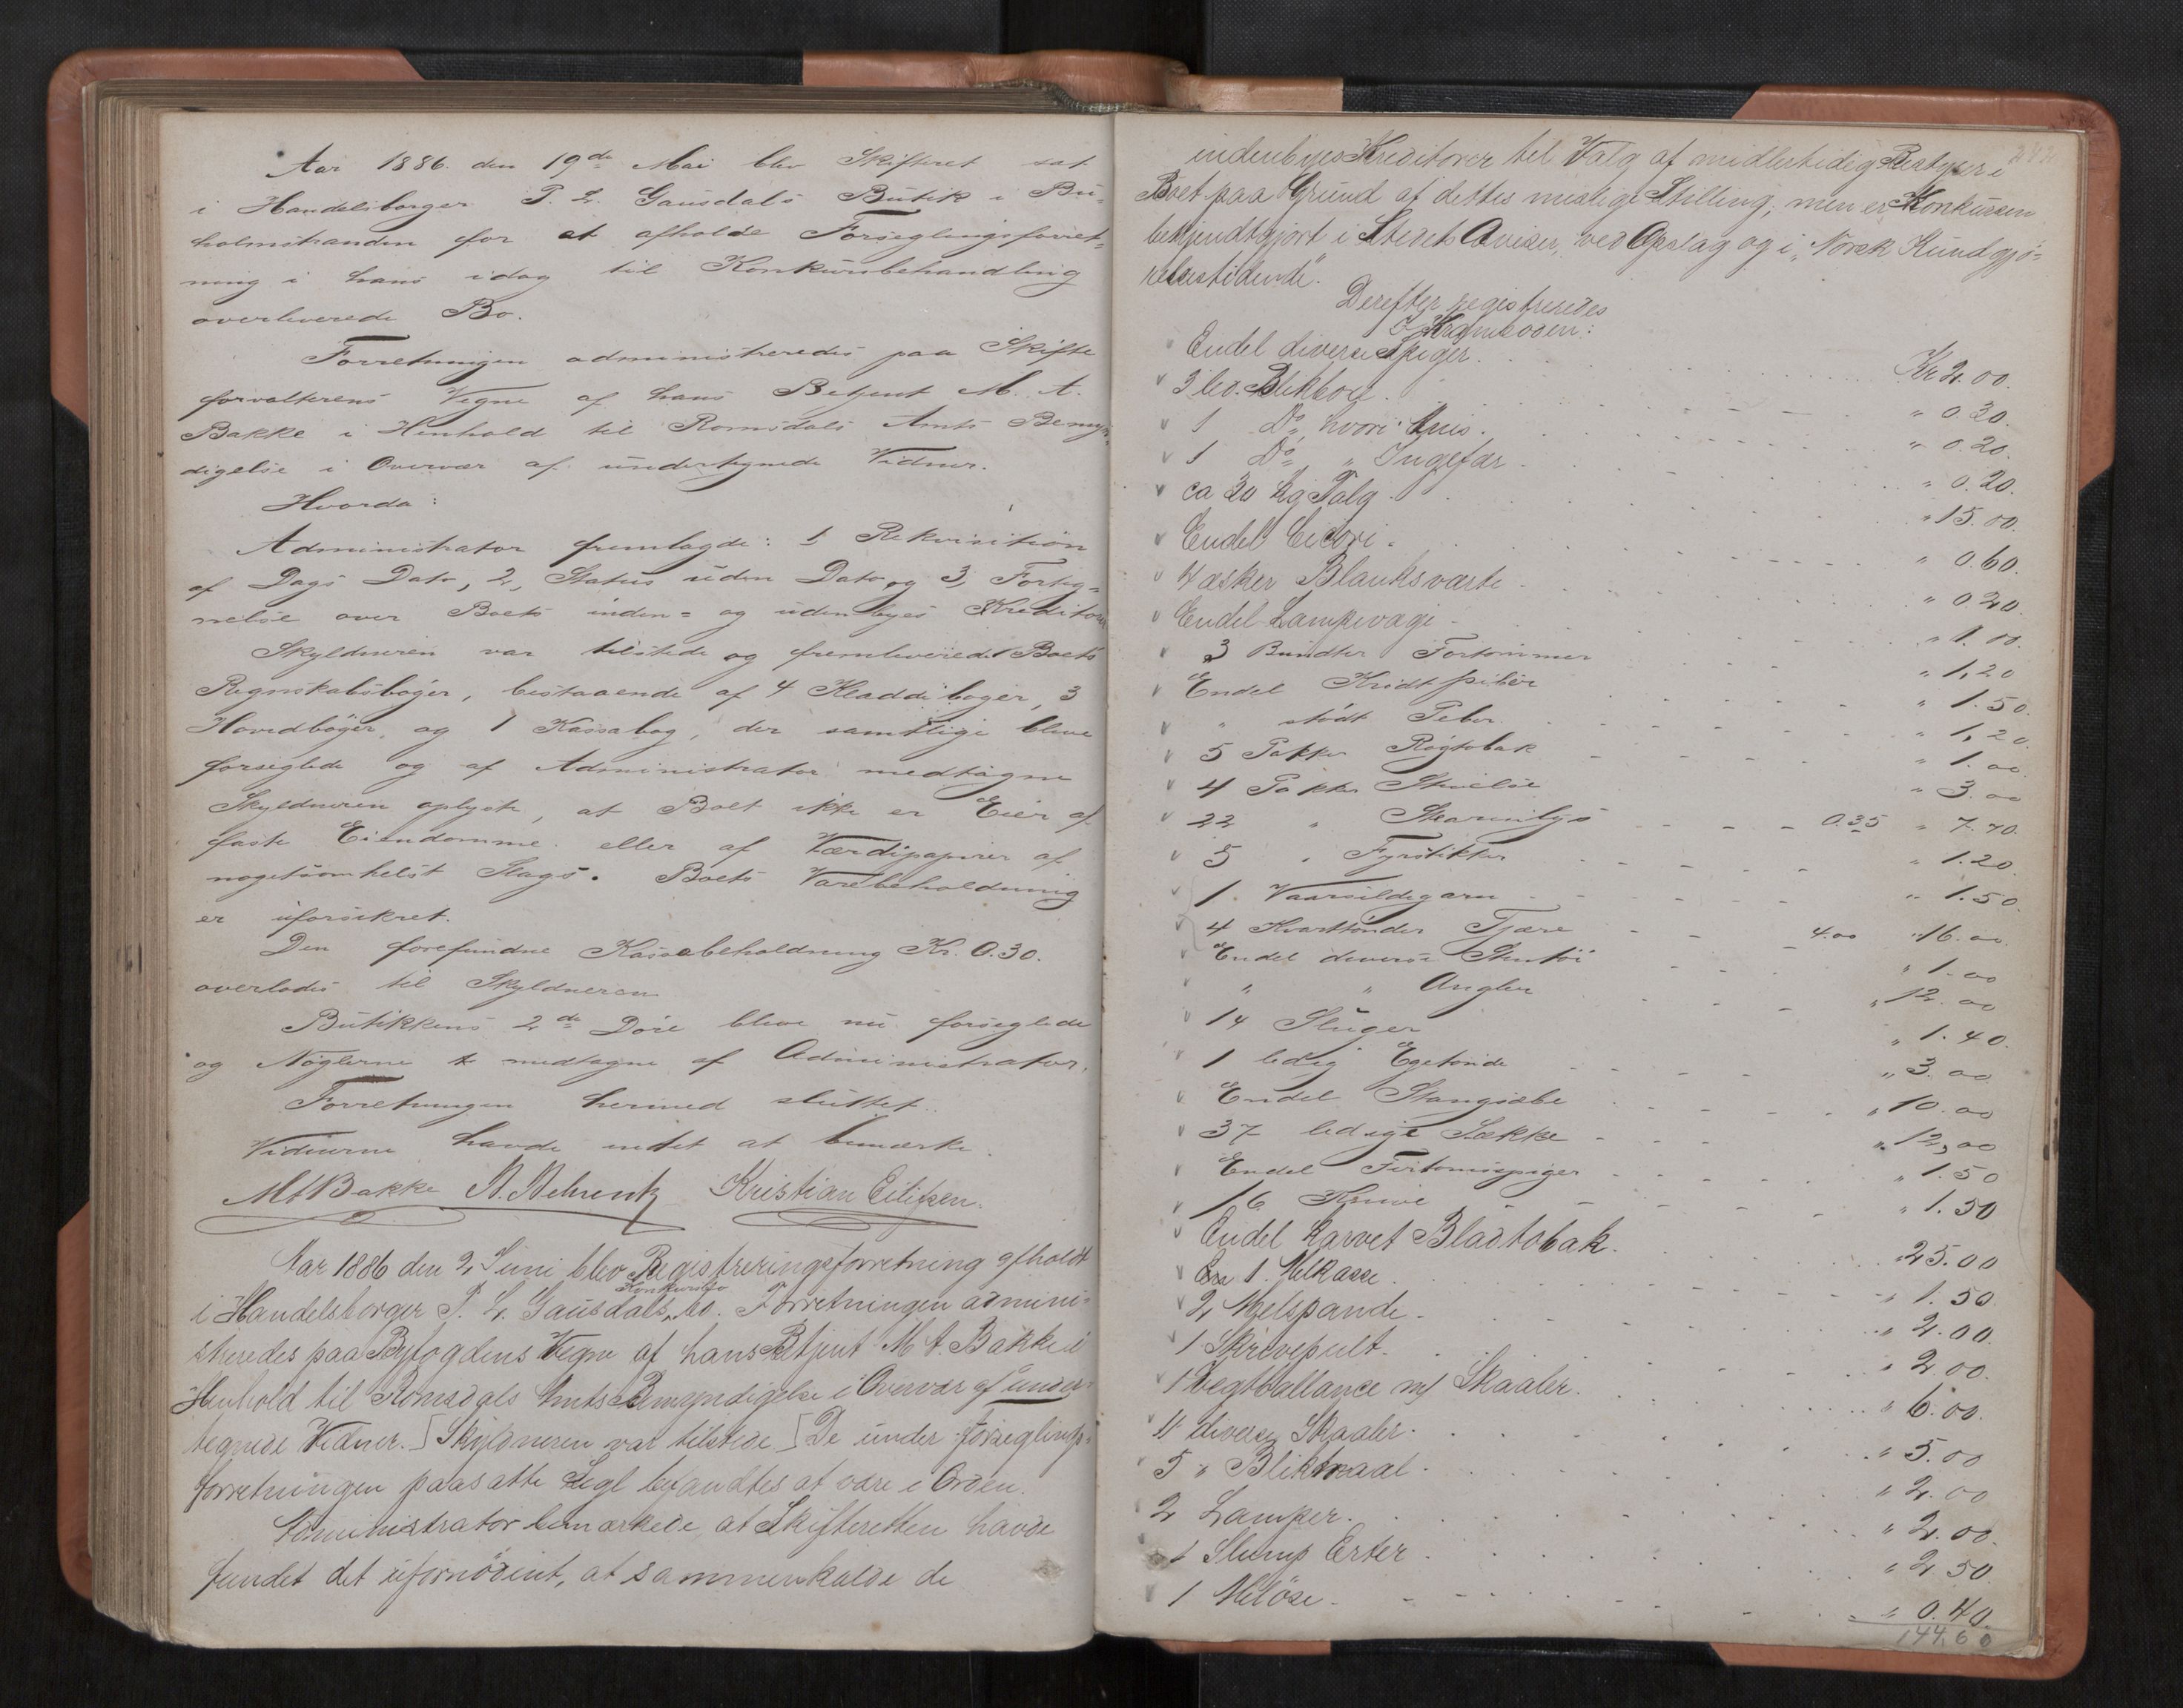 Aar 1886 den 19de Mai blev Skifteret sat
i Handelsborger P. L. Gausdals Butik i Bu-
holmstranden for at afholde Forseglingsforret-
ning i hans idag til Konkursbehandling
overleverede Bo.
Forretningen administreredes paa Skifte
forvalterens Vegne af hans Betjent M. A.
Bakke i Henhold til Romsdals Amts Bemyn-
digelse i Overvær af undertegnede Vidner.
Hvorda:
Administrator fremlagde: 1, Rekvisition
af Dags Dato, 2, Status uden Dato og 3, Forteg-
nelse over Boets inden- og udenbyes Kreditorer
Skyldneren var tilstede og fremleverede Boets
Regnskabsbøger, bestaaende af 4 Kladdebøger, 3
Hovedbøger, og 1 Kassabog, der samtlige bleve
forseglede og af Administrator medtagne
Skyldneren oplyste, at Boet ikke er Eier af
faste Eiendomme eller af Værdipapirer af
nogetsomhelst Slags. Boets Varebeholdning
er uforsikret.
Den forefundne Kassabeholdning Kr. 0.30.
overlodes til Skyldneren
Butikkens 2de Døre bleve nu forseglede
og Nøglerne medtagne af Administrator.
Forretningen hermed sluttet.
Vidnerne havde intet at bemærke.
M A Bakke N. Behrentz Kristian Eilifsen.
Aar 1886 den 2, Juni blev Registreringsforretning afholdt
Konkurs
i Handelsborger P. L. Gausdals bo. Forretningen admini-
streredes paa Byfogdens Vegne af hans Betjent M. A. Bakke i
Henhold til Romsdals Amts Bemyndigelse i Overvær af under-
tegnede Vidner. [Skyldneren var tilstede] De under forseglings-
forretningen paasatte Segl befandtes at være i Orden.
Administrator bemærkede, at Skifteretten havde
fundet det ufornødent, at sammenkalde de
indenbyes Kreditorer til Valg af midlertidig Bestyrer i
Boet paa Grund af dettes mislige Stilling; men er Konkursen
bekjendtgjort i Stedets Aviser, ved Opslag og i "Norsk Kundgjø-
relsestidende".
Derefter registreredes
I Kramboden:
Endel diverse Spiger. Kr 2.00.
3 led. Blikbox. " 0.30.
1 Do, hvori Anis. " 0.20.
1 Do " Ingefær. " 0.20.
ca 30 kg Talg. " 15.00.
Endel Cicori. " 0.60.
4 æsker Blanksværte. " 0.20.
Endel Lampevæge " 1.00.
3 Bundter Fortømmer " 1,20
Endel Kridtpiber " 1.50.
" stødt Peber. " 1,20.
5 Pakker Røgtobak " 1.00
4 Pakker Stivelse " 3.00
22 " Stearinlys 0.35 " 7.70.
5 " Fyrstikker " 1.20.
1 Vaarsildegarn " 1.50.
4 Kvarttønder Tjære 4.00 " 16.00.
Endel diverse Stentøi " 1.00
" " Angler " 12.00
14 Sluger " 1.40.
1 ledig Egetønde " 3.00
Endel Stangsæbe " 10.00
37 ledige Sække " 12,00
Endel Fortømsspiger " 1.50
16 Knive " 1.50
Endel karvet Bladtobak. " 25.00
1 Melkasse. " 1.50
2 Melspande. " 2.00.
1 Skrivepult. " 2.00.
1 Vegtballance m/ Skaaler. " 6.00.
4 diverse Skaaler. " 5.00
5 " Blikmaal. " 2.00
2 Lamper. " 2.00.
1 Slump Erter. " 2.50
1 Meløse. " 0.40.
144,60